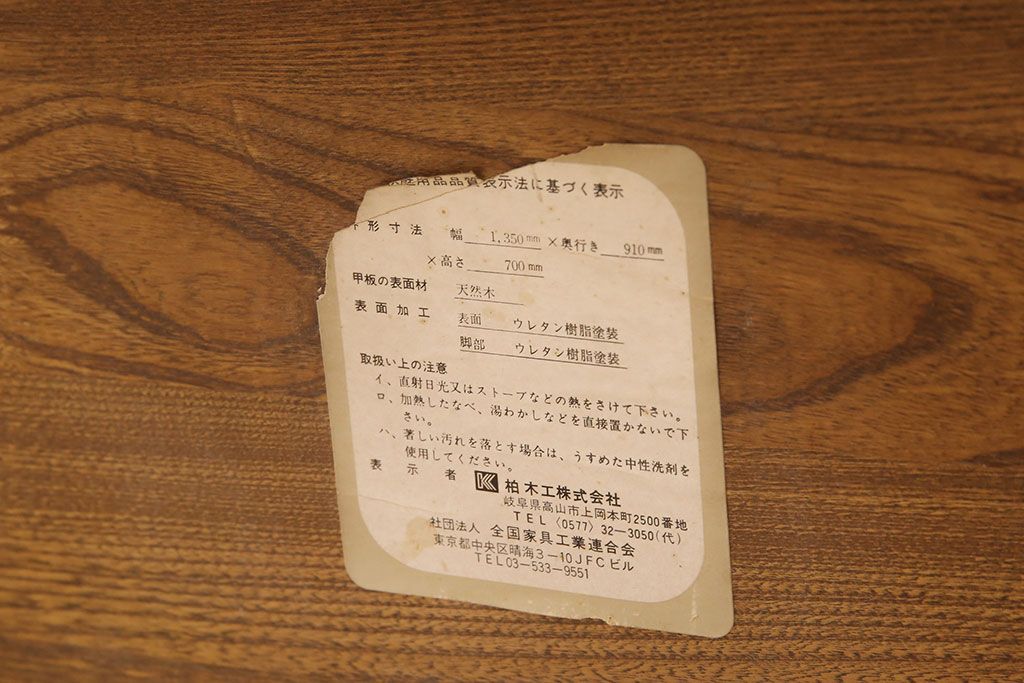 庭用品品質表示法に基づく表示
形寸法 幅 1,350mm ×奥行き 910mm
×高さ 700mm
甲板の表面材 天然木
表面加工 表面 ウレタン樹脂塗装
脚部 ウレタン樹脂塗装
取扱い上の注意
イ、直射日光又はストーブなどの熱をさけて下さい。
ロ、加熱したなべ、湯わかしなどを直接置かないで下
さい。
ハ、著しい汚れを落とす場合は、うすめた中性洗剤を
使用してください。
表示者 柏木工株式会社
岐阜県高山市上岡本町2500番地
TEL〈0577〉32-3050(代)
社団法人 全国家具工業連合会
東京都中央区晴海3-10JFCビル
TEL03-533-9551